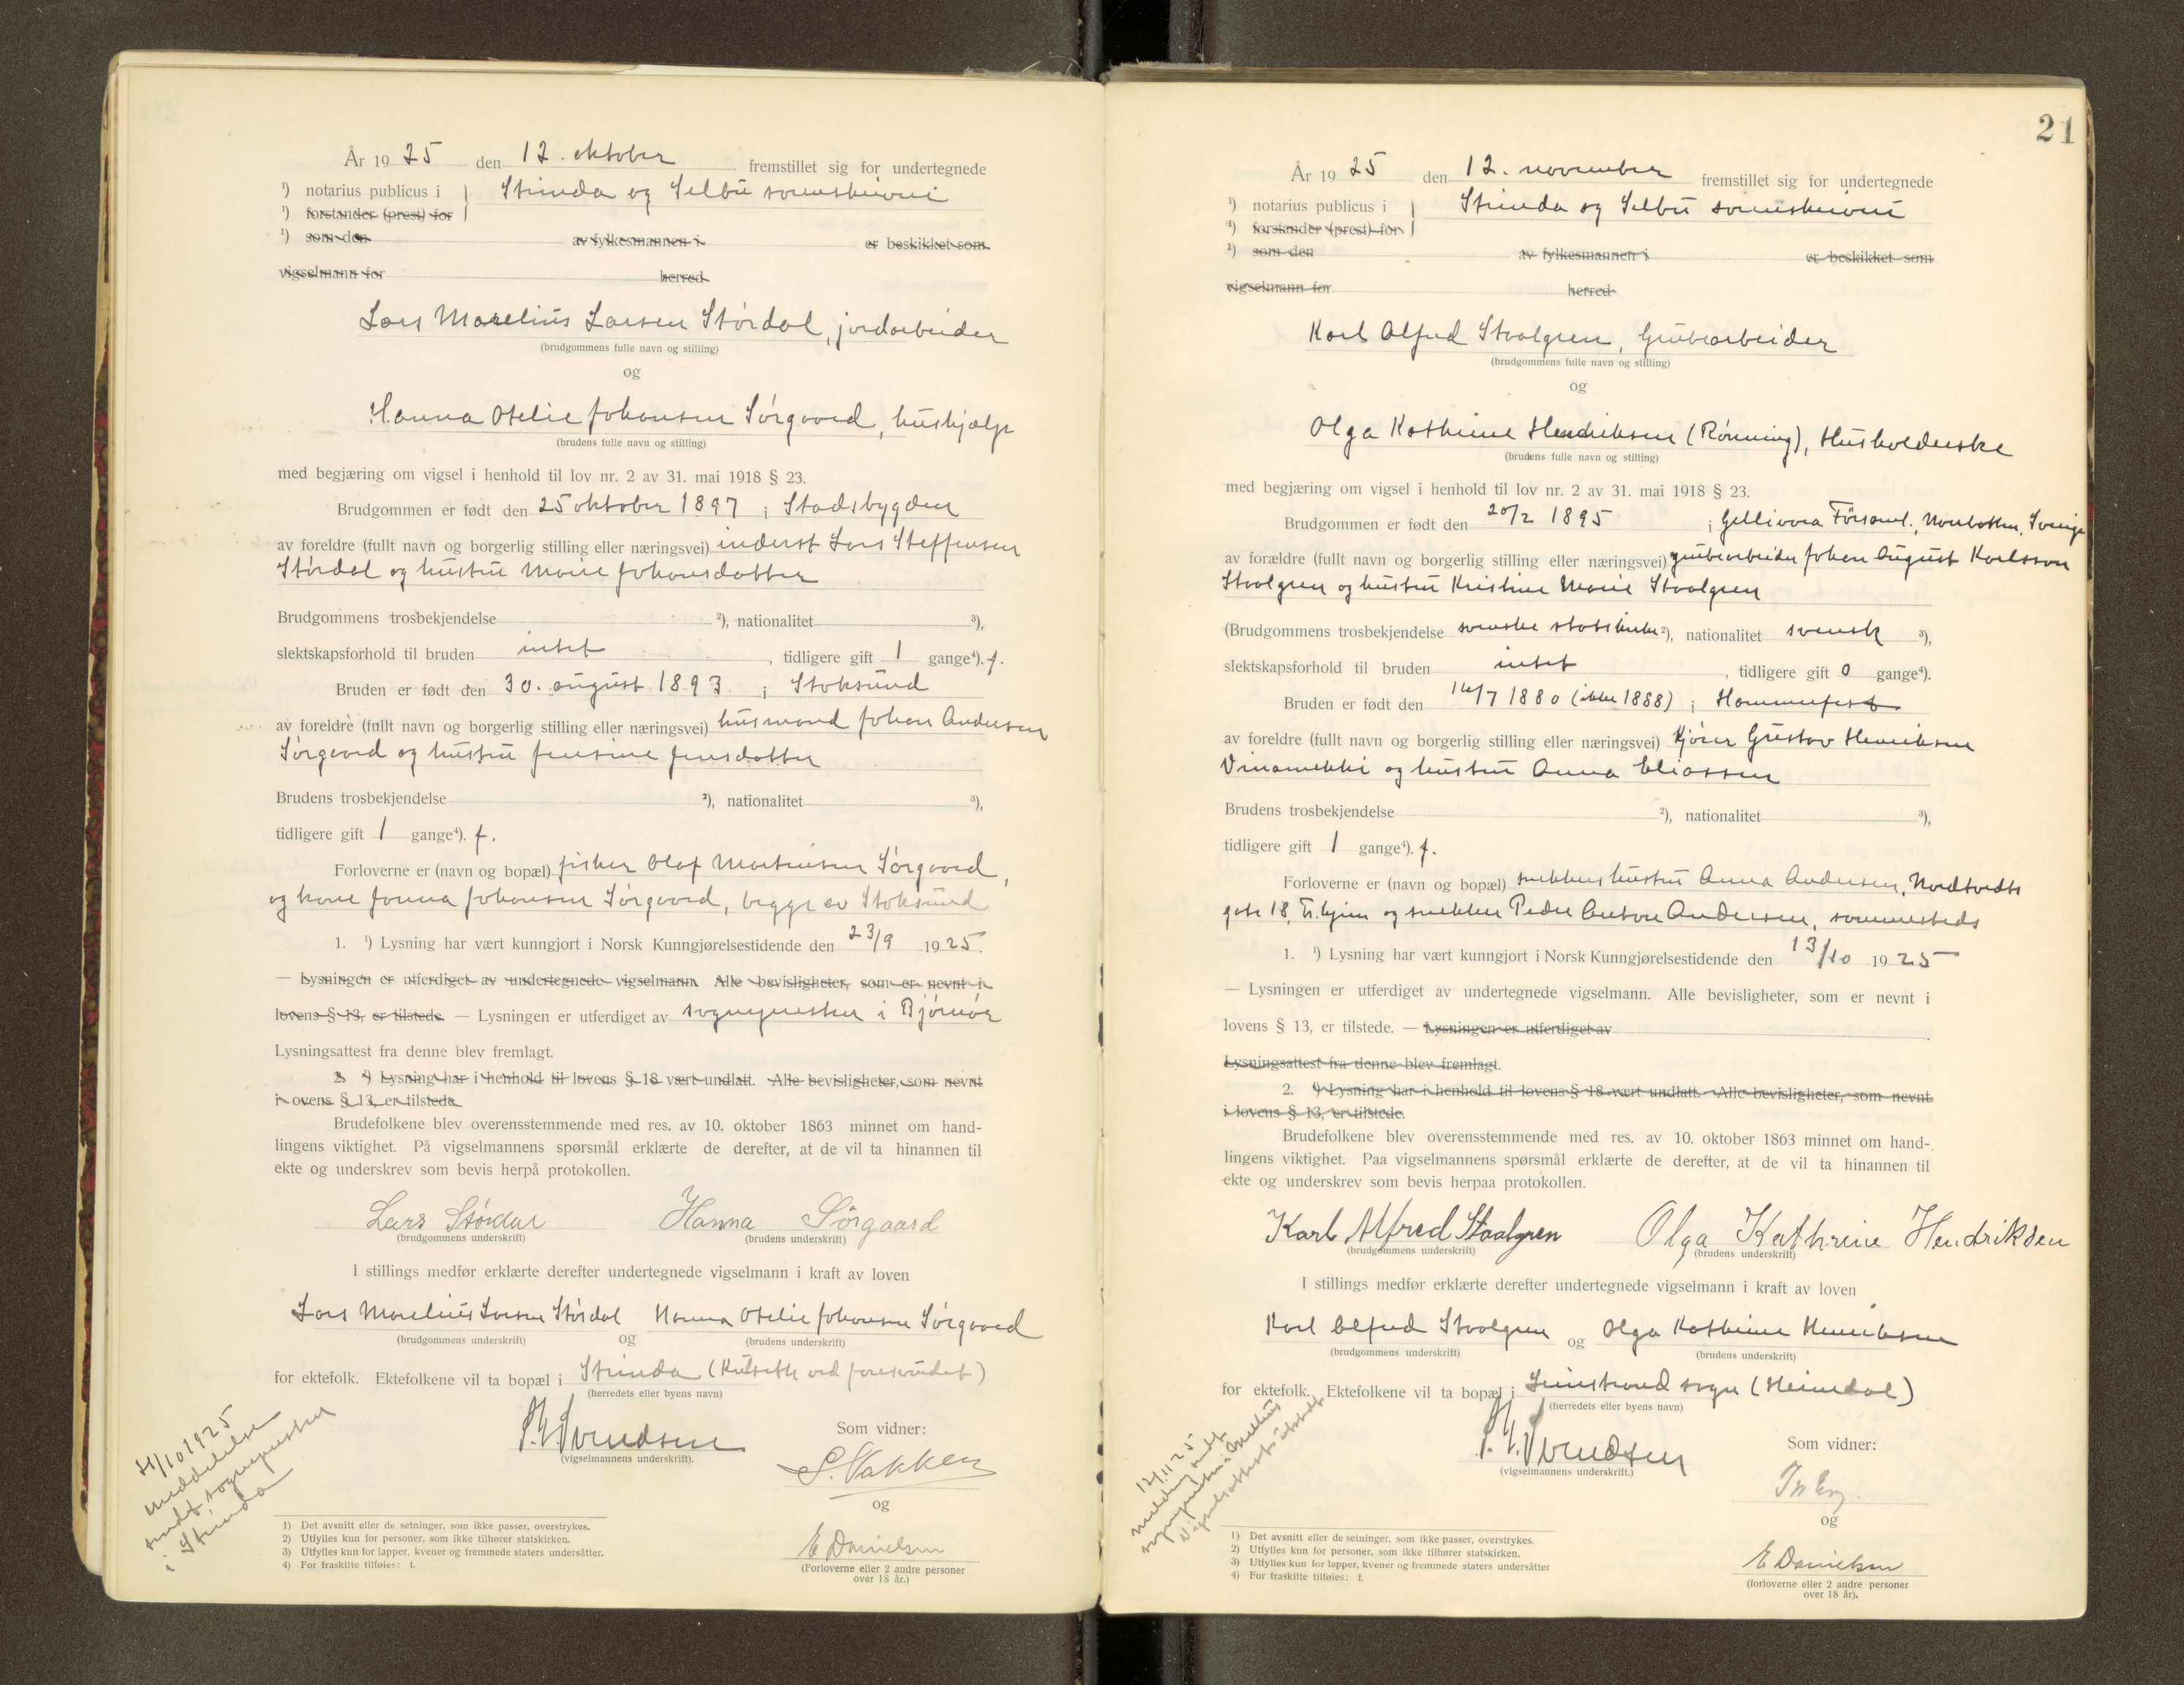 År 1925 den 12. oktober fremstillet sig for undertegnede
¹) notarius publicus i Strinda og Selbu sorenskriveri
¹) forstander (prest) for
¹) som den av fylkesmannen i er beskikket som
vigselmann for herred
Lars Marelius Larsen Størdal, jordarbeider
(brudgommens fulle navn og stilling)
og
Hanna Otelie Johansen Sørgaard, hushjælp
(brudens fulle navn og stilling)
med begjæring om vigsel i henhold til lov nr. 2 av 31. mai 1918 § 23.
Brudgommen er født den 25 oktober 1897 i Stadsbygden
av foreldre (fullt navn og borgerlig stilling eller næringsvei) inderst Lars Steffensen
Størdal og hustru Marie Johansdatter
Brudgommens trosbekjendelse ²), nationalitet ³),
slektskapsforhold til bruden intet, tidligere gift 1 gange⁴). f.
Bruden er født den 30. august 1893. i Stoksund
av foreldre (fullt navn og borgerlig stilling eller næringsvei) husmand Johan Andersen
Sørgaard og hustru Jensine Jensdatter
Brudens trosbekjendelse ²), nationalitet ³),
tidligere gift 1 gange⁴). f.
Forloverne er (navn og bopæl) fisker Olaf Martinsen Sørgaard,
og kone Jonna Johansen Sørgaard, begge av Stoksund
1. ¹) Lysning har vært kunngjort i Norsk Kunngjørelsestidende den 23/9 1925.
— Lysningen er utferdiget av undertegnede vigselmann. Alle bevisligheter, som er nevnt i
lovens § 13, er tilstede. — Lysningen er utferdiget av sogneprester i Bjørnør
Lysningsattest fra denne blev fremlagt.
2. ¹) Lysning har i henhold til lovens § 18 vært undlatt. Alle bevisligheter, som nevnt
i ovens § 13, er tilstede.
Brudefolkene blev overensstemmende med res. av 10. oktober 1863 minnet om hand-
lingens viktighet. På vigselmannens spørsmål erklærte de derefter, at de vil ta hinannen til
ekte og underskrev som bevis herpå protokollen.
Lars Størdal Hanna Sörgaard
(brudgommens underskrift) (brudens underskrift)
I stillings medfør erklærte derefter undertegnede vigselmann i kraft av loven
Lars Marelius Larsen Størdal Hanna Otelie Johansen Sørgaard
(brudgommens underskrift) og (brudens underskrift)
for ektefolk. Ektefolkene vil ta bopæl i Strinda
(herredets eller byens navn)
Svendsen
(vigselmannens underskrift).
Som vidner:
S. Vakken
og
E Danielsen
(Forloverne eller 2 andre personer
over 18 år.)
meddelelse
sendt sogneprester
i Strinda
1) Det avsnitt eller de setninger, som ikke passer, overstrykes.
2) Utfylles kun for personer, som ikke tilhører statskirken.
3) Utfylles kun for lapper, kvener og fremmede staters undersåtter.
4) For fraskilte tilføies: f.
21
År 1925 den 12. november fremstillet sig for undertegnede
¹) notarius publicus i Strinda og Selbu sorenskriveri
¹) forstander (prest) for
¹) som den av fylkesmannen i er beskikket som
vigselmann for herred
Karl Alfred Staalgren, Grubearbeider
(brudgommens fulle navn og stilling)
og
Olga Kathrine Hendriksen (Rønning), Husholderske
(brudens fulle navn og stilling)
med begjæring om vigsel i henhold til lov nr. 2 av 31. mai 1918 § 23.
Brudgommen er født den 20/2 1895 i Gellivara Församl., Norrbotten, Sverige
av forældre (fullt navn og borgerlig stilling eller næringsvei) grubearbeider Johan August Karlsson
Staalgren og hustru Kristina Maria Staalgren
(Brudgommens trosbekjendelse svenske statskirke ²), nationalitet svensk ³),
slektskapsforhold til bruden intet, tidligere gift 0 gange⁴).
Bruden er født den 16/7 1880 (ikke 1888) i Hammerfest
av foreldre (fullt navn og borgerlig stilling eller næringsvei) Kjører Gustav Henriksen
og hustru Anna Eliassen
Brudens trosbekjendelse ²), nationalitet ³),
tidligere gift 1 gange⁴). f.
Forloverne er (navn og bopæl) snekkers hustru Anna Andersen, Nordtvedts
gate 18, Tr.hjem og snekker Peder Anton Andersen, sammesteds
1. ¹) Lysning har vært kunngjort i Norsk Kunngjørelsestidende den 13/10 1925
— Lysningen er utferdiget av undertegnede vigselmann. Alle bevisligheter, som er nevnt i
lovens § 13, er tilstede. — Lysningen er utferdiget av
Lysningsattest fra denne blev fremlagt.
2. ¹) Lysning har i henhold til lovens § 18 vært undlatt. Alle bevisligheter, som nevnt
i lovens § 13, er tilstede.
Brudefolkene blev overensstemmende med res. av 10. oktober 1863 minnet om hand-
lingens viktighet. Paa vigselmannens spørsmål erklærte de derefter, at de vil ta hinannen til
ekte og underskrev som bevis herpaa protokollen.
Karl Alfred Staalgren Olga Kathrine Hendriksen
(brudgommens underskrift) (brudens underskrift)
I stillings medfør erklærte derefter undertegnede vigselmann i kraft av loven
Karl Alfred Staalgren og Olga Kathrine Henriksen
(brudgommens underskrift) (brudens underskrift)
for ektefolk. Ektefolkene vil ta bopæl i Leinstrand sogn (Heimdal)
(herredets eller byens navn)
Svendsen
(vigselmannens underskrift.)
Som vidner:
og
E Danielsen
(forloverne eller 2 andre personer
over 18 år).
12/11 25
melding sendt
1) Det avsnitt eller de setninger, som ikke passer, overstrykes.
2) Utfylles kun for personer, som ikke tilhører statskirken.
3) Utfylles kun for lapper, kvener og fremmede staters undersåtter
4) For fraskilte tilføies: f.